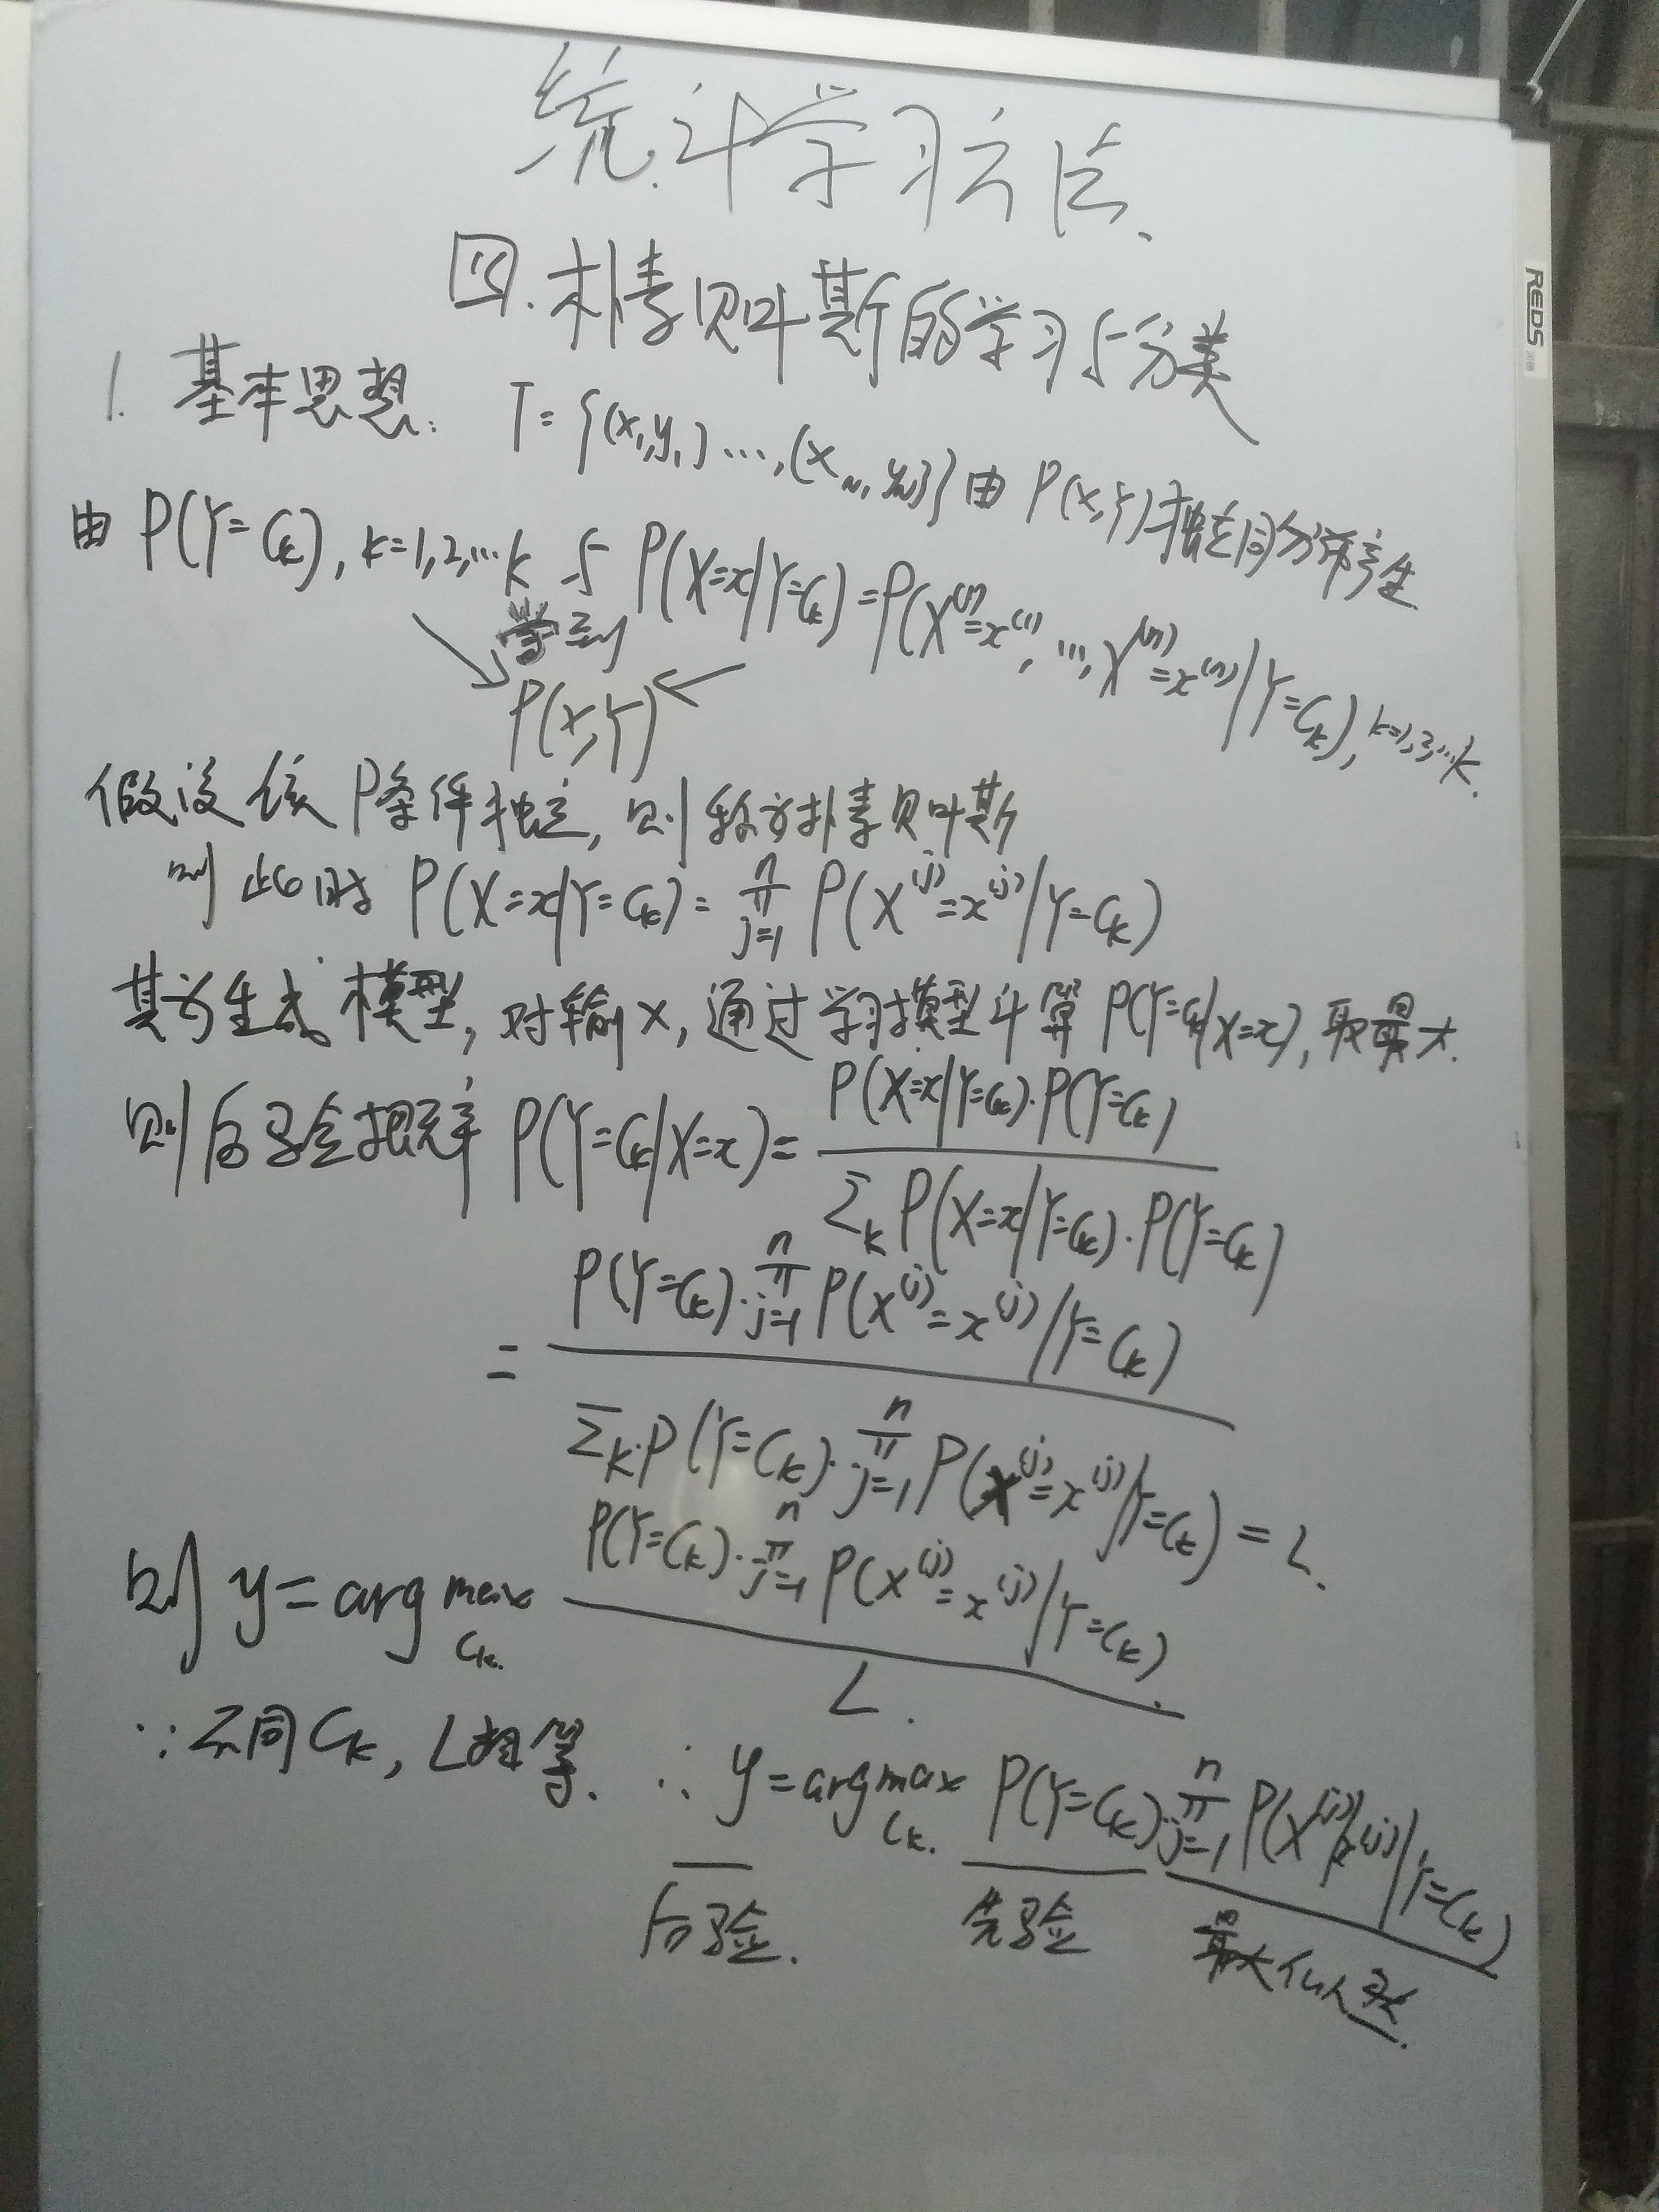 统计学习方法.
四.朴素贝叶斯的学习与分类
1. 基本思想: T={(x₁,y₁)...,(x_N,y_N)}由P(X,Y)独立同分布产生
由P(Y=C_k), k=1,2,...k 与 P(X=x|Y=C_k)=P(X^(1)=x^(1),...,X^(n)=x^(n)|Y=C_k), k=1,2,...k.
学到
P(X,Y)
假设该P条件独立, 则称为朴素贝叶斯
则此时 P(X=x|Y=C_k)=∏_{j=1}^{n} P(X^(j)=x^(j)|Y=C_k)
其为生成模型, 对输入X, 通过学习模型计算P(Y=C_k|X=x), 取最大.
则后验概率 P(Y=C_k|X=x)= P(X=x|Y=C_k)·P(Y=C_k) / Σ_k P(X=x|Y=C_k)·P(Y=C_k)
= P(Y=C_k)·∏_{j=1}^{n} P(X^(j)=x^(j)|Y=C_k) / Σ_k·P(Y=C_k)·∏_{j=1}^{n} P(X^(j)=x^(j)|Y=C_k) = L.
则 y = arg max_{C_k.} P(Y=C_k)·∏_{j=1}^{n} P(X^(j)=x^(j)|Y=C_k) / L.
∵不同C_k, L相等. ∴ y=arg max_{C_k.} P(Y=C_k)·∏_{j=1}^{n} P(X^(j)=x^(j)|Y=C_k)
后验. 先验 最大似然.
REDS